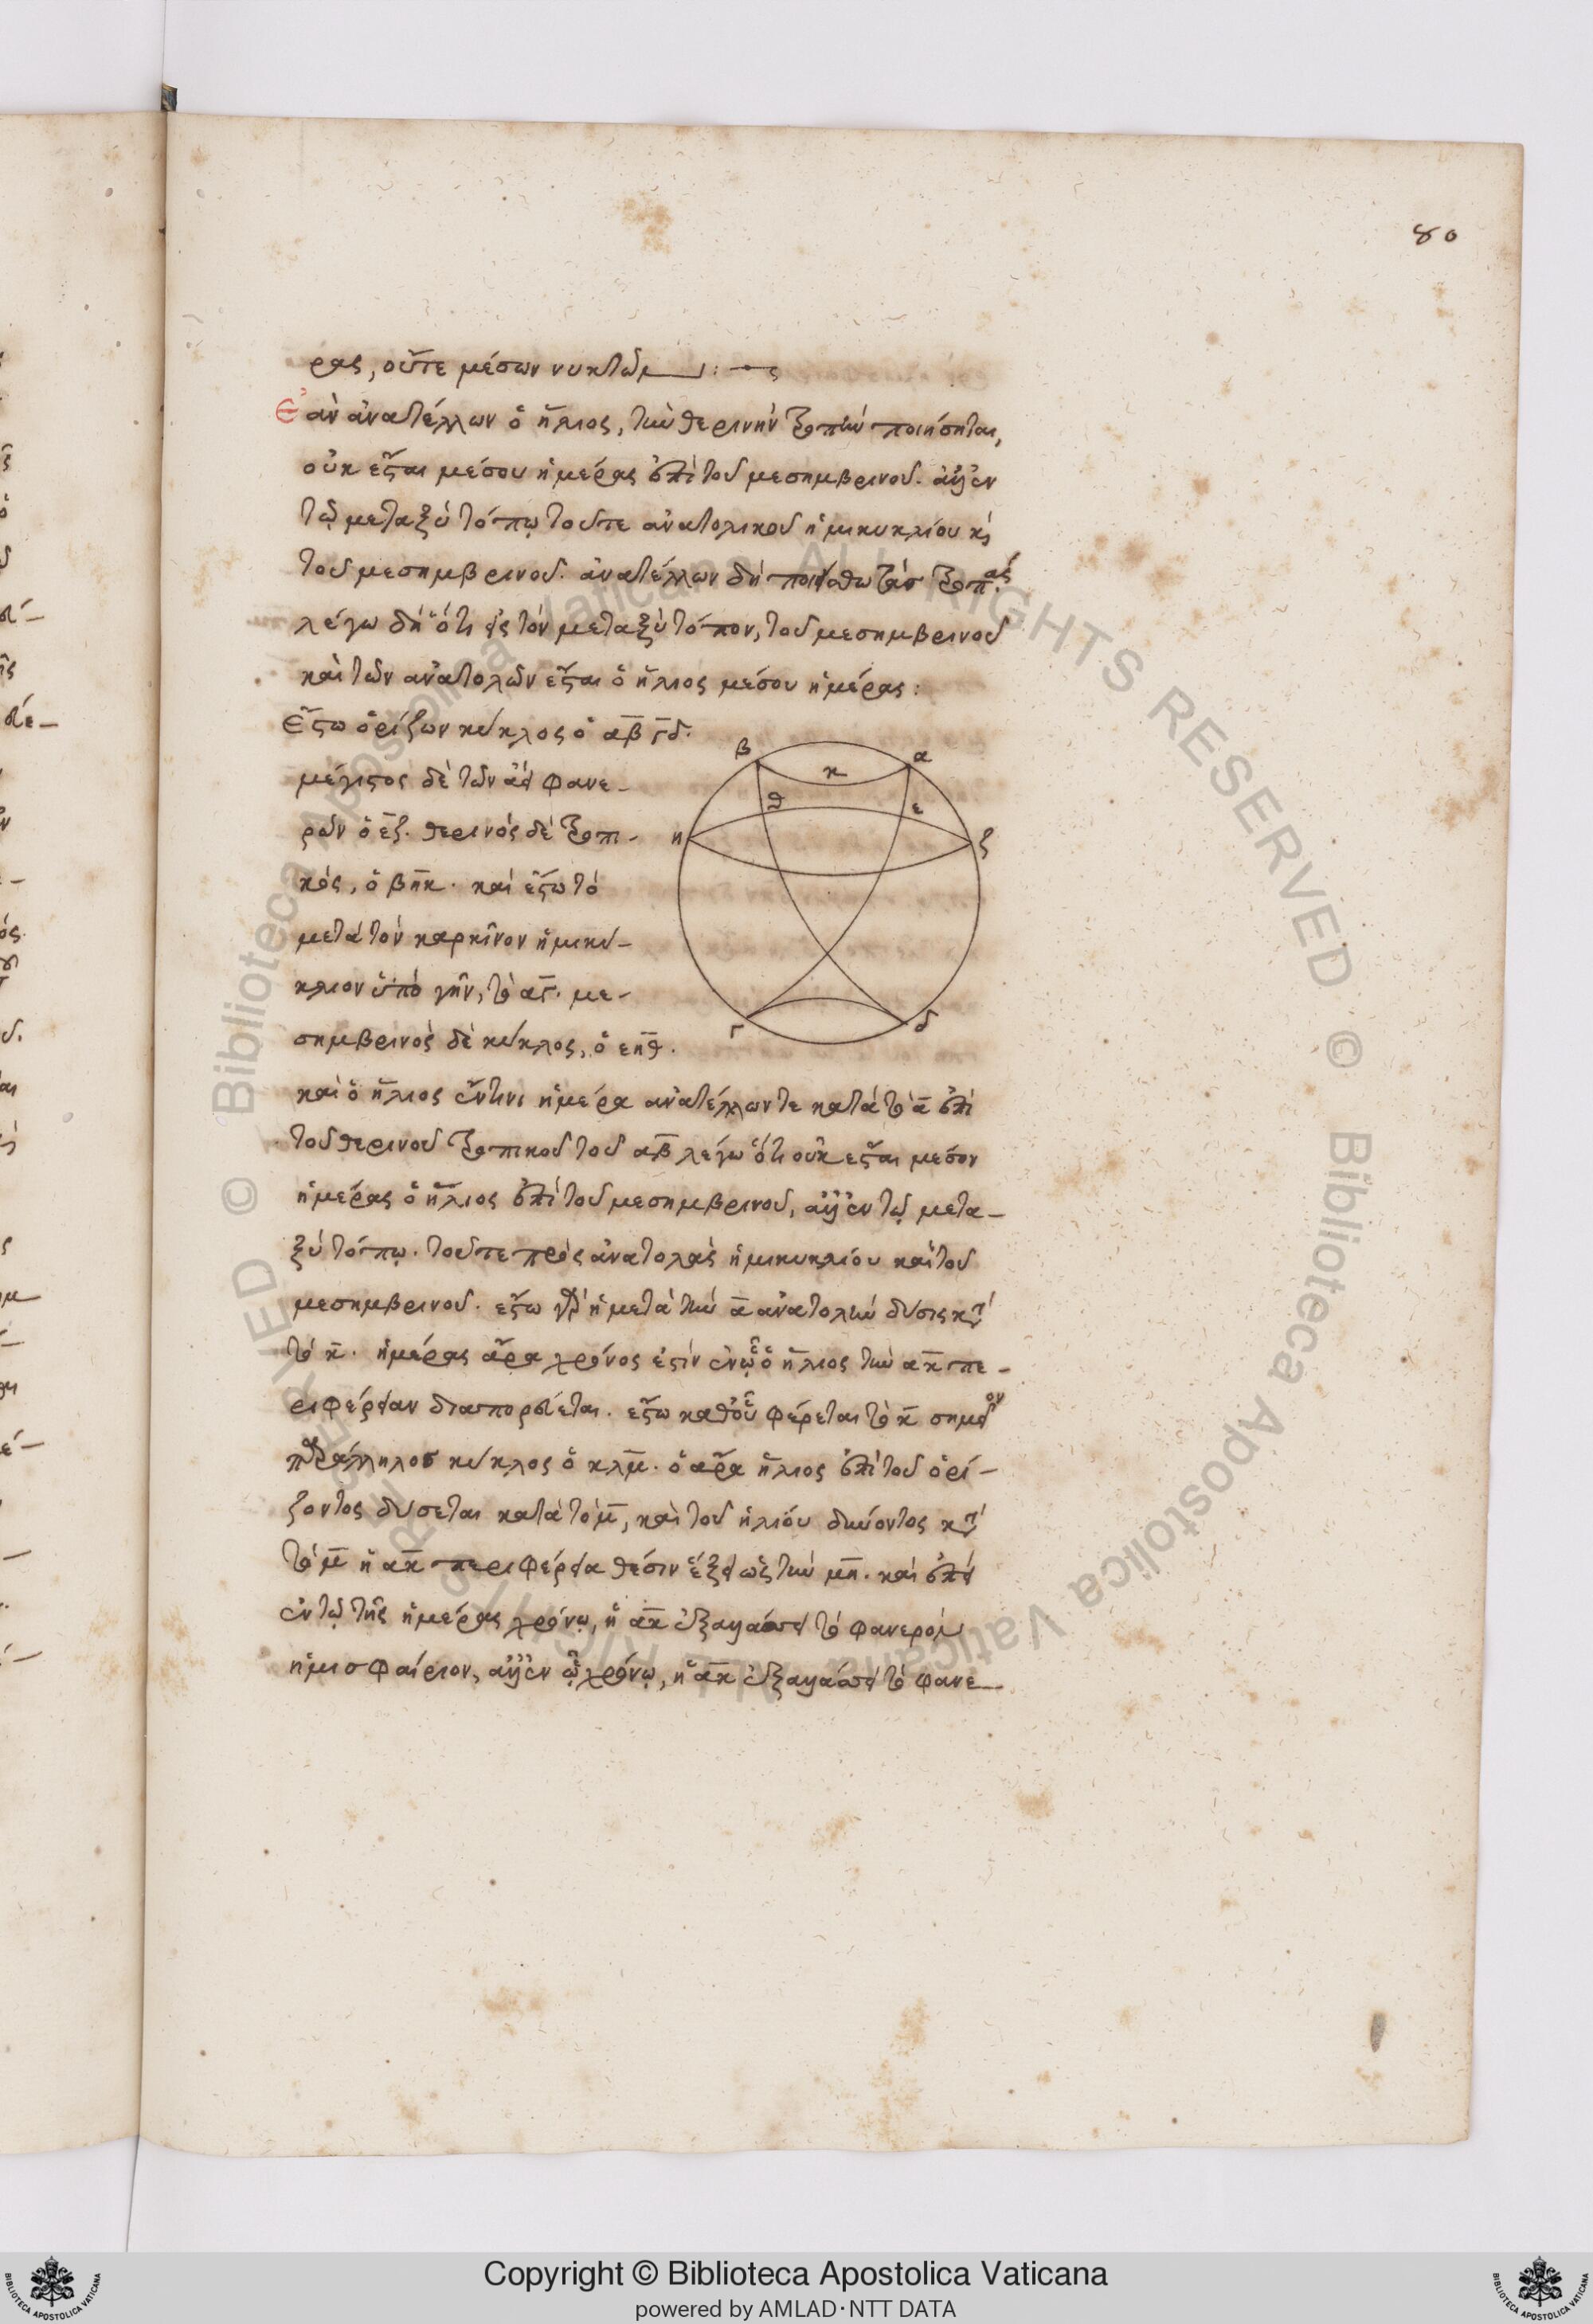 80
ρας, οὔτε μέσων νυκτῶν :
Ἐὰν ἀνατέλλων ὁ ἥλιος, τὴν θερινὴν τροπὴν ποιήσηται,
οὐκ ἔσται μέσου ἡμέρας ἐπὶ τοῦ μεσημβρινοῦ. ἀλλ' ἐν
τῷ μεταξὺ τόπῳ τοῦ τε ἀνατολικοῦ ἡμικυκλίου κὶ
τοῦ μεσημβρινοῦ. ἀνατέλλων δὴ ποιείσθω τὰσ τροπάς.
λέγω δὴ ὅτι εἰς τὸν μεταξὺ τόπον, τοῦ μεσημβρινοῦ
καὶ τῶν ἀνατολῶν ἔσται ὁ ἥλιος μέσου ἡμέρας :
Ἔστω ὁρίζων κύκλος ὁ αβ γδ.
μέγιστος δὲ τῶν ἀεὶ φανε-
ρῶν ὁ εζ. θερινὸς δὲ τροπι-
κός, ὁ βηκ. καὶ ἔστω τὸ
μετὰ τὸν καρκῖνον ἡμικύ-
κλιον ὑπὸ γῆν, τὸ αγ. με-
σημβρινὸς δὲ κύκλος, ὁ εηθ.
β α κ θ ε η ζ γ δ
καὶ ὁ ἥλιος ἔν τινι ἡμέρα ἀνατέλλων τε κατὰ τὸ α ἐπὶ
τοῦ θερινοῦ τροπικοῦ τοῦ αβ λέγω ὅτι οὐκ ἔσται μέσον
ἡμέρας ὁ ἥλιος ἐπὶ τοῦ μεσημβρινοῦ, ἀλλ' ἐν τῷ μετα-
ξὺ τόπῳ. τοῦ τε πρὸς ἀνατολὰς ἡμικυκλίου καὶ τοῦ
μεσημβρινοῦ. ἔστω γὰρ ἡ μετὰ τὴν α ἀνατολὴν δύσις κατὰ
τὸ κ. ἡμέρας ἄρα χρόνος ἐστὶν ἐν ᾧ ὁ ἥλιος τὴν ακ πε-
ριφέρειαν διαπορεύεται. ἔστω καθ' οὗ φέρεται τὸ κ σημεῖον
παράλληλοσ κύκλος ὁ κλμ. ὁ ἄρα ἥλιος ἐπὶ τοῦ ὁρί-
ζοντος δύσεται κατὰ τὸ μ, καὶ τοῦ ἡλίου δύνοντος κατὰ
τὸ μ ἡ ακ περιφέρεια θέσιν ἕξει ὡς τὴν μη. καὶ ἐπεὶ
ἐν τῷ τῆς ἡμέρας χρόνῳ, ἡ ακ ἐξαλλάσσει τὸ φανερὸν
ἡμισφαίριον, ἀλλ' ἐν ᾧ χρόνῳ, ἡ ακ ἐξαλλάσσει τὸ φανε-
© Biblioteca Apostolica Vaticana ALL RIGHTS RESERVED © Biblioteca Apostolica Vaticana ALL RIGHTS RESERVED
Copyright © Biblioteca Apostolica Vaticana
powered by AMLAD·NTT DATA